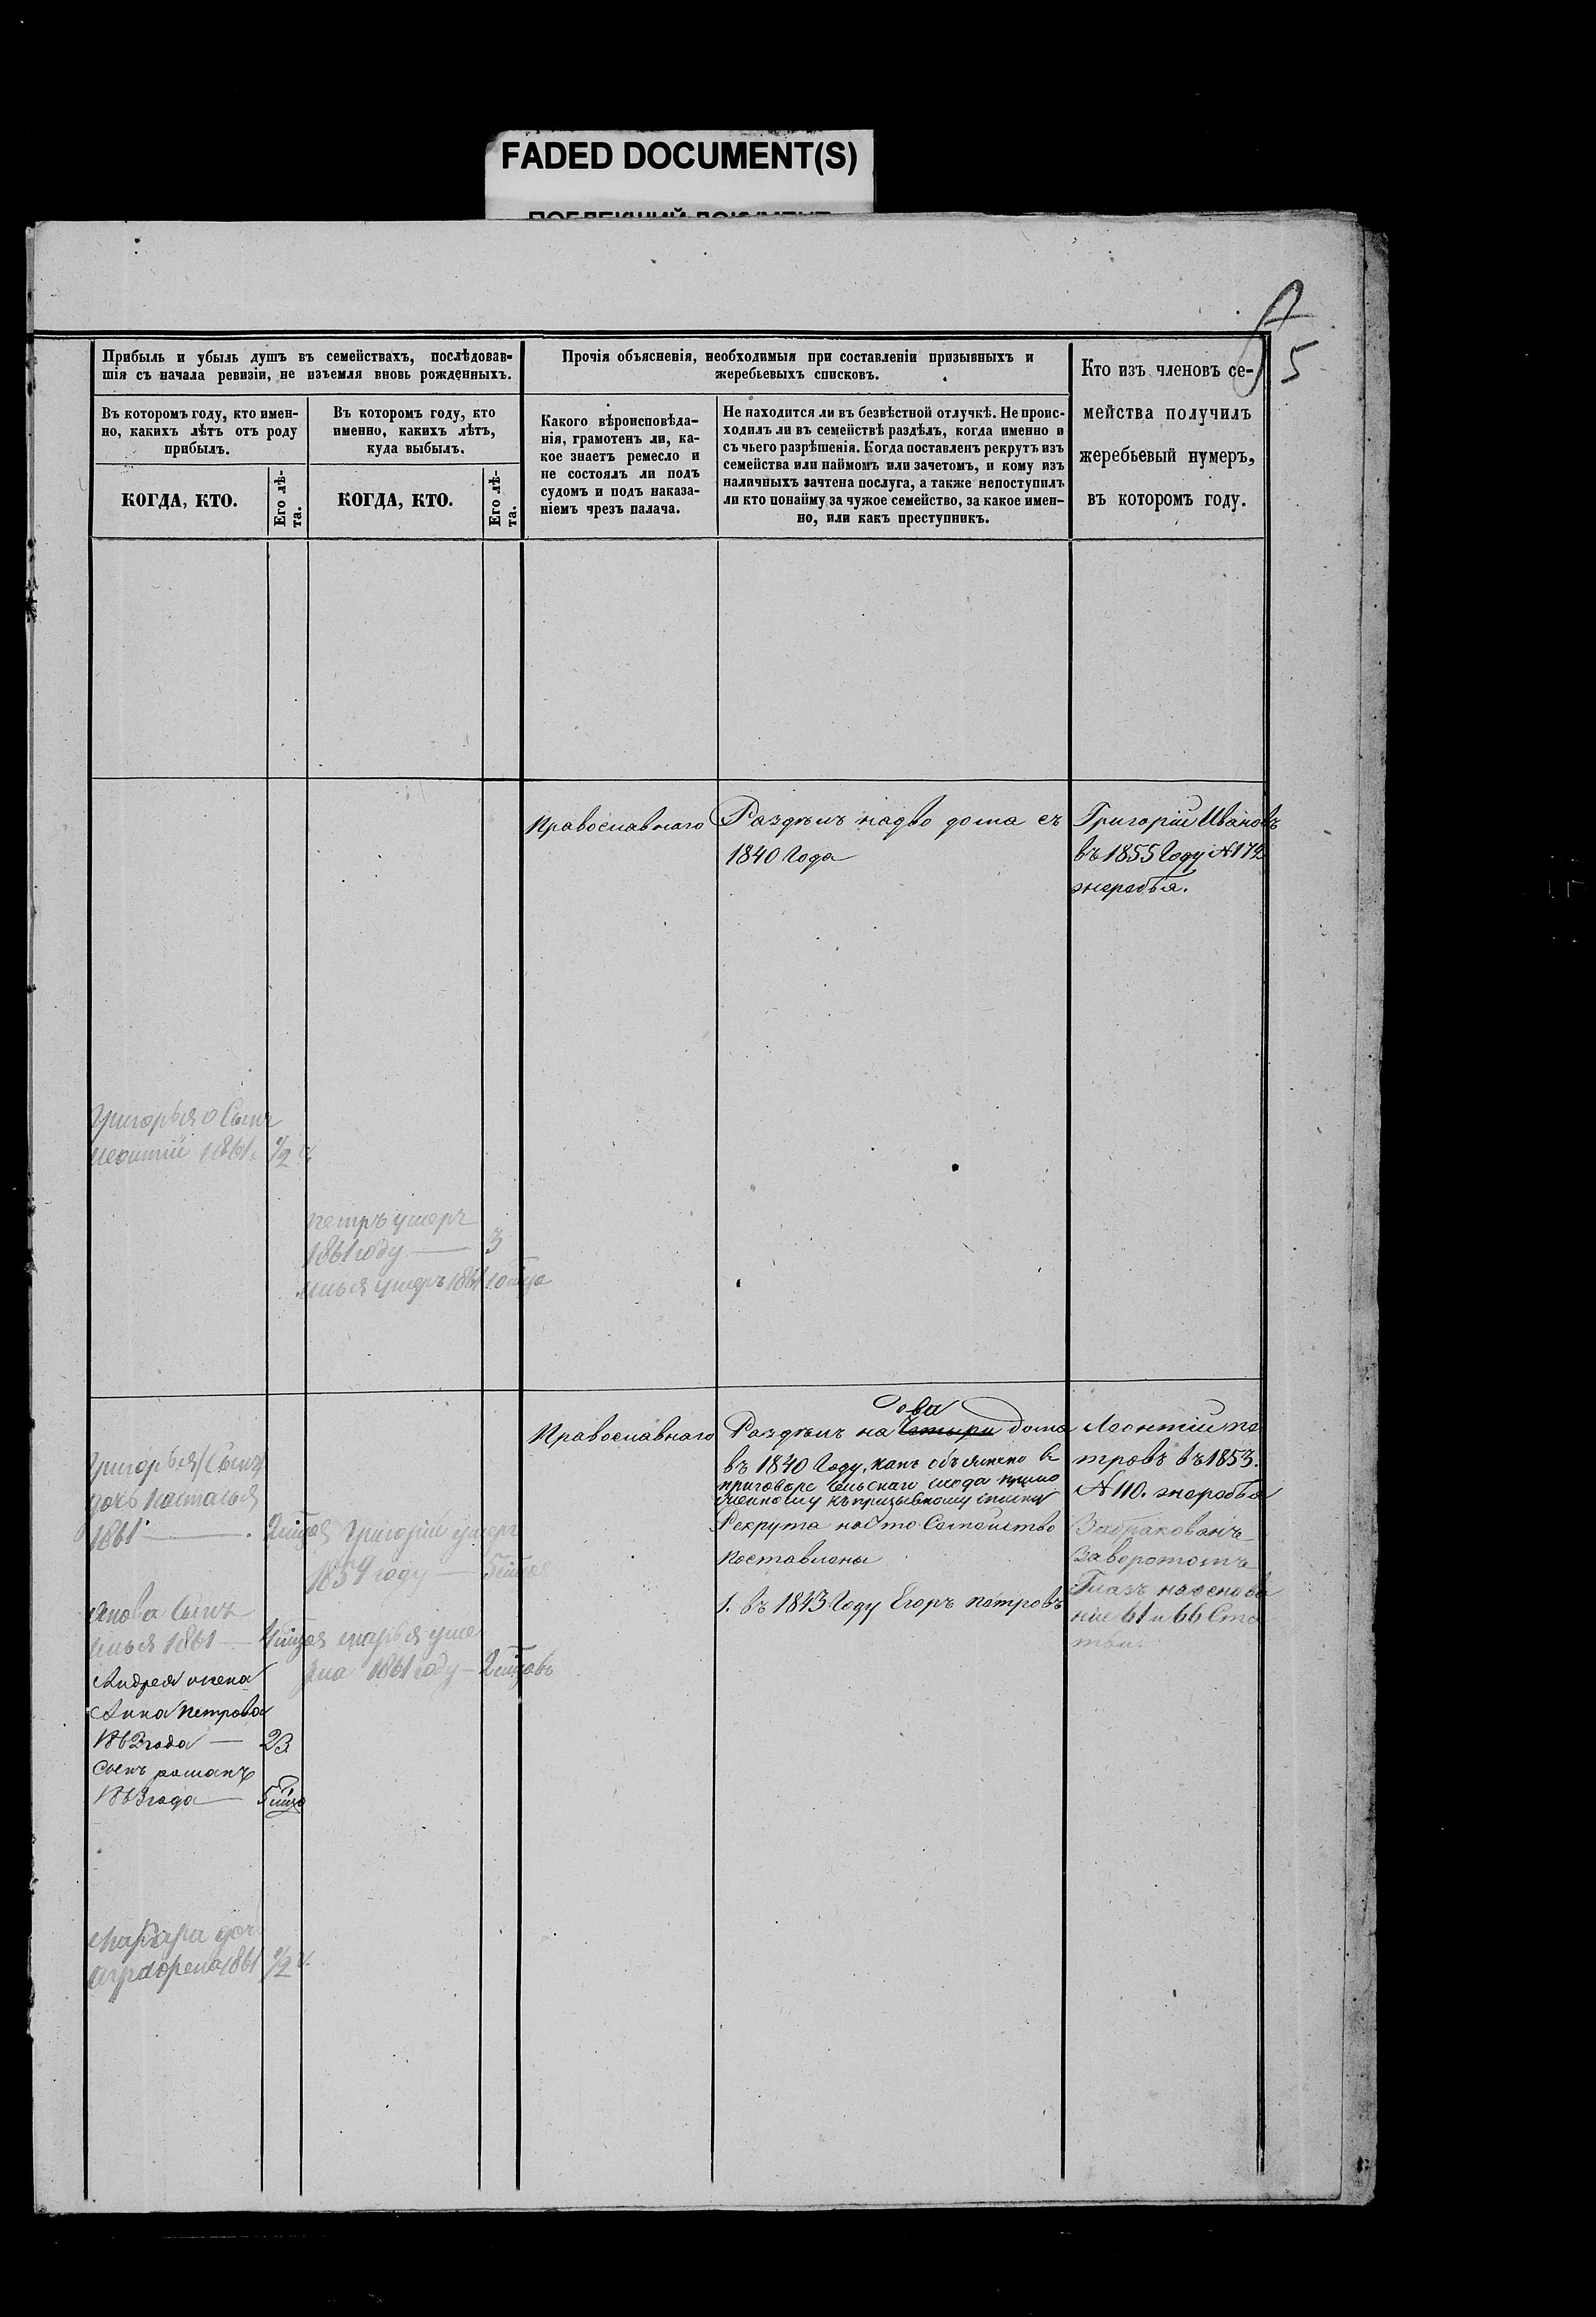 FADED DOCUMENT(S)
5
Прибыль и убыль душъ въ семействахъ, послѣдовав-
шія съ начала ревизіи, не изъемля вновь рожденныхъ.
Прочія объясненія, необходимыя при составленіи призывныхъ и
жеребьевыхъ списковъ.
Кто изъ членовъ се-
мейства получилъ
жеребьевый нумеръ,
въ которомъ году.
Въ которомъ году, кто имен-
но, какихъ лѣтъ отъ роду
прибылъ.
Въ которомъ году, кто
именно, какихъ лѣтъ,
куда выбылъ.
Какого вѣроисповѣда-
нія, грамотенъ ли, ка-
кое знаетъ ремесло и
не состоялъ ли подъ
судомъ и подъ наказа-
ніемъ чрезъ палача.
Не находится ли въ безвѣстной отлучкѣ. Не проис-
ходилъ ли въ семействѣ раздѣлъ, когда именно и
съ чьего разрѣшенія. Когда поставленъ рекрутъ изъ
семейства или наймомъ или зачетомъ, и кому изъ
наличныхъ зачтена послуга, а также непоступилъ
ли кто понайму за чужое семейство, за какое имен-
но, или какъ преступникъ.
КОГДА, КТО.
Его лѣ-
та.
КОГДА, КТО.
Его лѣ-
та.
Православнаго
Раздѣлъ надво дома съ
1840 Года
Григорій Ивановъ
въ 1855 Году №172
жеребья.
Григорья Сынъ
1861. 1/2 г.
петръ умеръ
1861 году — 3
илья умеръ 1861 10
Православнаго
два
Раздѣлъ на Четыри дома
въ 1840 Году, какъ объяснено в
приговоре Сельскаго схода прило
женному къ призывному списку
Рекрута на это Семейство
поставлены
1. въ 1843 Году Егоръ Петровъ
Леонтій пе
тровъ въ 1853.
№ 110. жеребья
Забракованъ
Заворотомъ
Глазъ на основа
ніи 61 и 66 Ста
тьи.
Григорья Сынъ
дочь Наталья
1861 —
Григорій умеръ
1859 году —
Сынъ
илья 1861 —
марья уме
рла 1861 году —
Андрея жена
Анна Петрова
1862 года — 23
Сынъ романъ
1863 года —
Макара доч
Аграфена 1861 1/2 г.